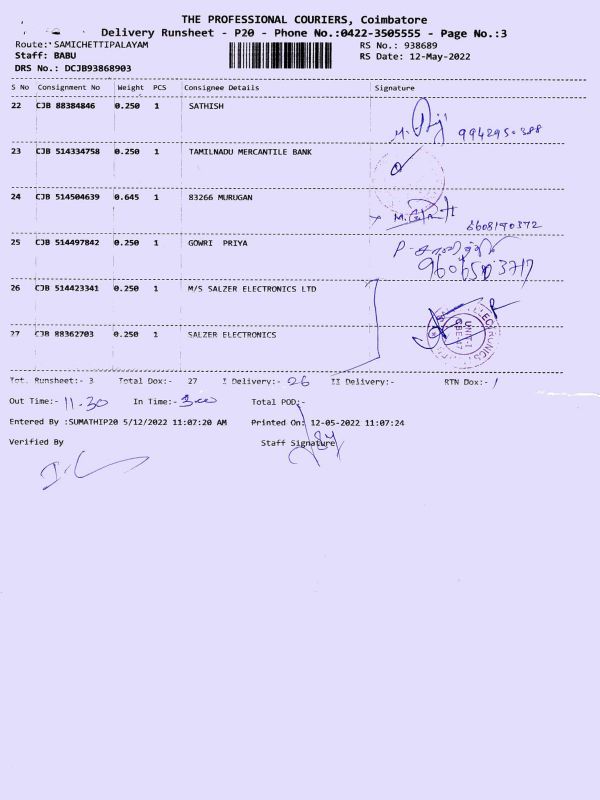 THE PROFESSIONAL COURIERS, Coimbatore
Delivery Runsheet - P20 - Phone No.:0422-3505555 - Page No.:3
Route: SAMICHETTIPALAYAM RS No.: 938689
Staff: BABU RS Date: 12-May-2022
DRS No.: DCJB93868903
S No Consignment No Weight PCS Consignee Details Signature
22 CJB 88384846 0.250 1 SATHISH
23 CJB 514334758 0.250 1 TAMILNADU MERCANTILE BANK
24 CJB 514504639 0.645 1 83266 MURUGAN
8608190372
25 CJB 514497842 0.250 1 GOWRI PRIYA
26 CJB 514423341 0.250 1 M/S SALZER ELECTRONICS LTD
27 CJB 88362703 0.250 1 SALZER ELECTRONICS
UNIT-I
Tot. Runsheet:- 3 Total Dox:- 27 I Delivery:- 26 II Delivery:- RTN Dox:- 1
Out Time:- 11.30 In Time:- 3.00 Total POD:-
Entered By :SUMATHIP20 5/12/2022 11:07:20 AM Printed On: 12-05-2022 11:07:24
Verified By Staff Signature